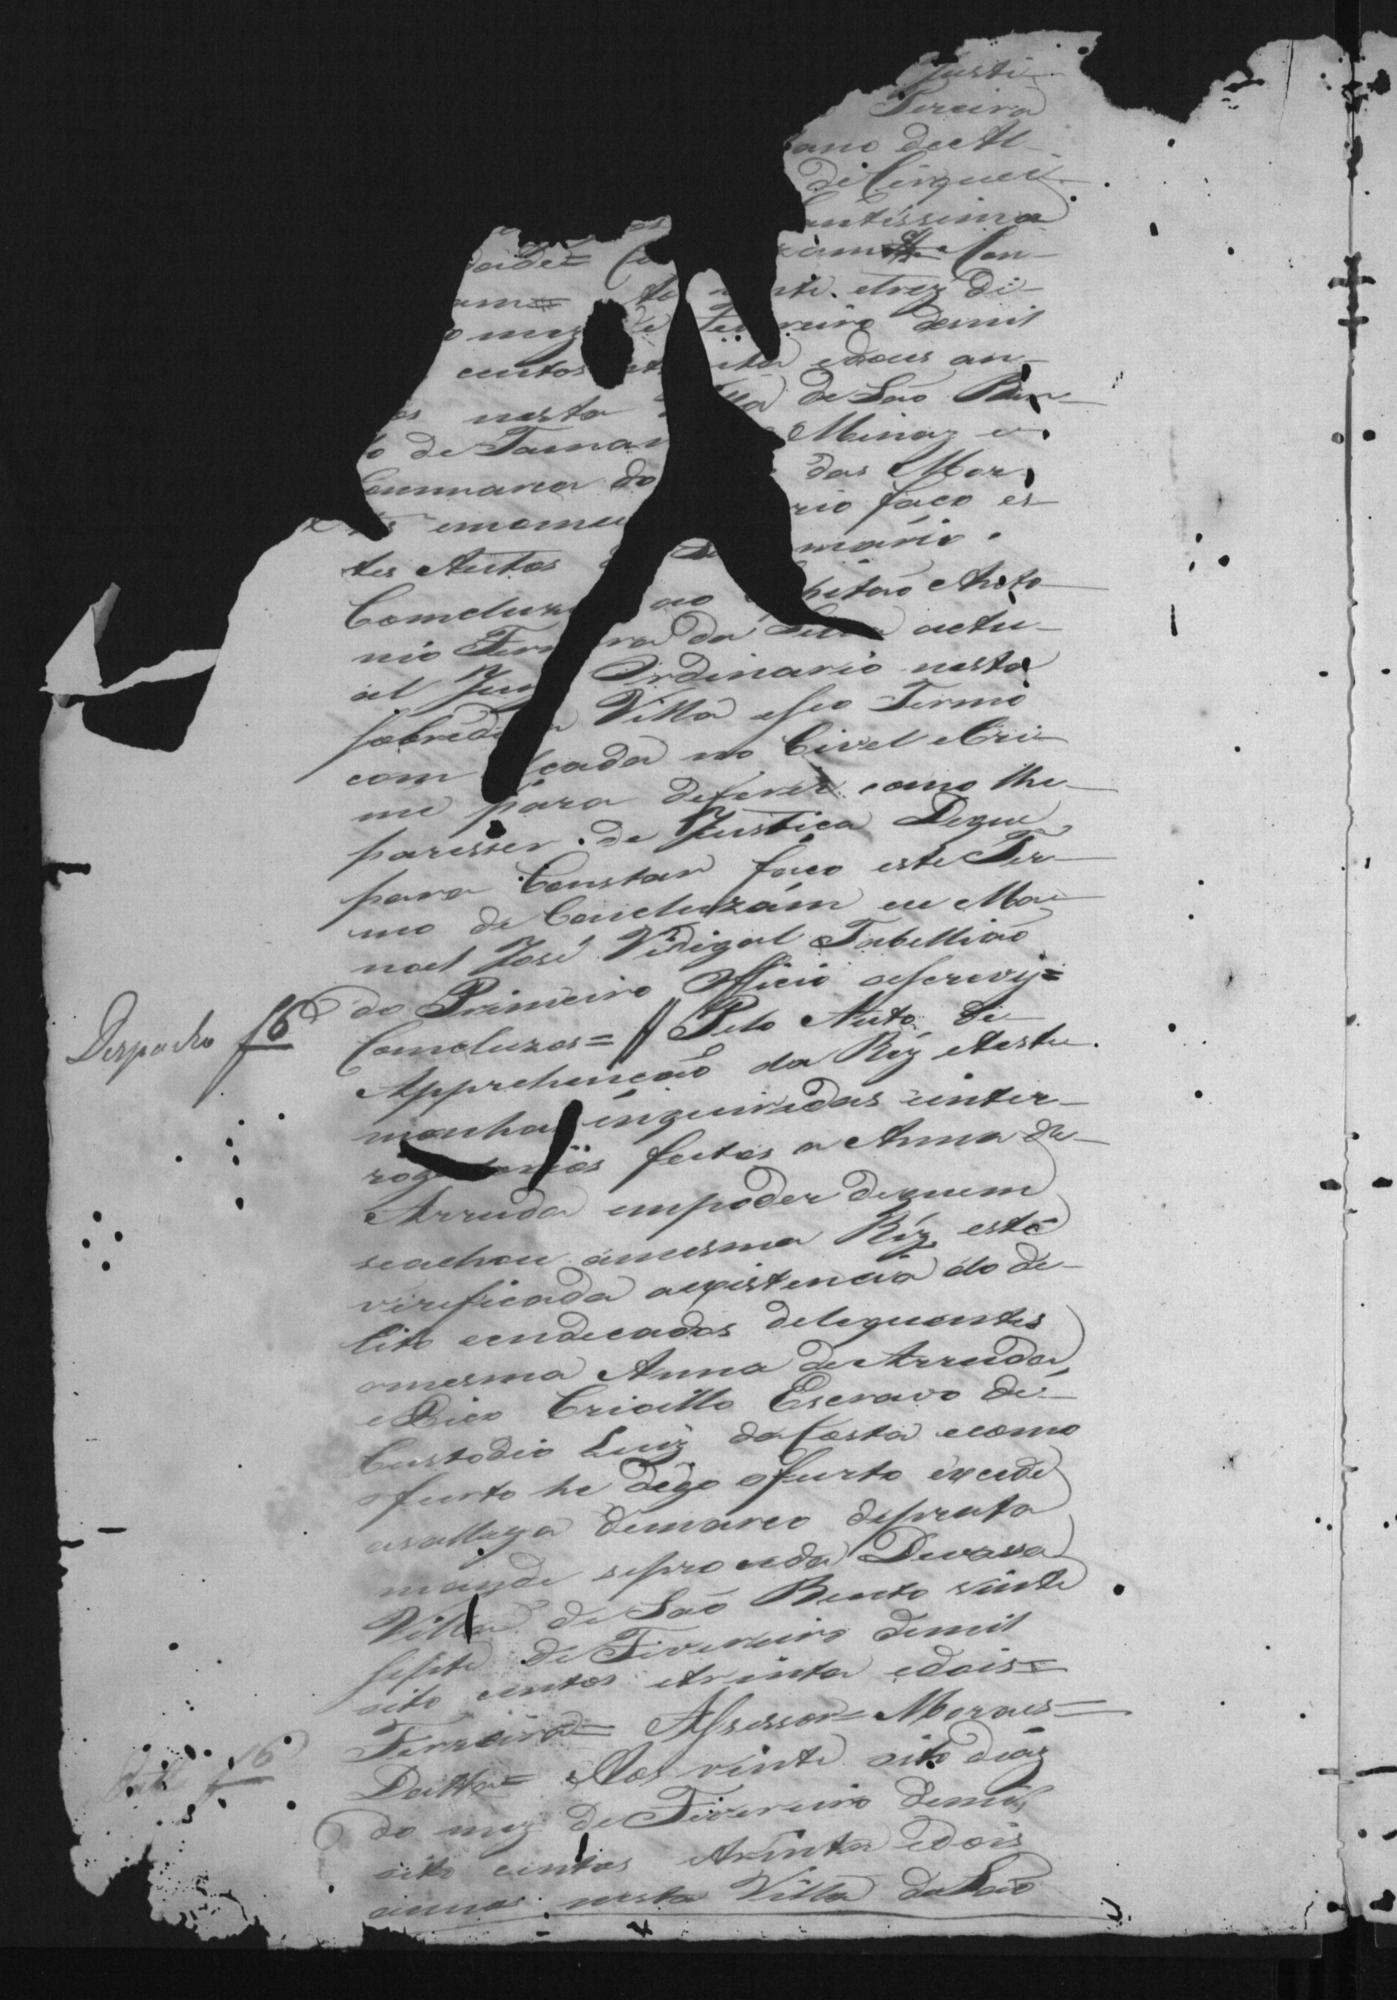 Justi-
Pereira
ano de Al-
de Cirquei-
antissima
dade= Con-
am= nte etrez di-
o mez de Fevereiro demil
centos et inta edous an-
os nesta Villa de São Ben-
to de Taman Minas e
Commarca do das Mor-
tes emomeu rio faço es-
tes Autos mário.
Comcluzo ao pitão Anto-
nio Ferreira da Silva actu-
al Juiz Ordinario nesta
sobredita Villa eseo Termo
com lçada no Civel eCri-
me para deferir como lhe
paresser de Justiça Deque
para Constar faço este Ter-
mo de Concluzám eu Ma-
noel José Vidigal Tabellião
do Primeiro Officio oescrevy=
Despacho f 6
Comcluzos= // Pelo Auto de
Apprehenção da Rêz etestu-
manhas inqueiridas einter-
rogatorios feitos a Anna de
Arruda empoder dequem
seachou amesma Rêz está
vireficada aexistencia do de-
lito eendecados deleguentes
amesma Anna de Arruda,
e Crioillo Escravo de
Custodio Luiz da Costa ecomo
ofurto he digo ofurto excede
avallia demarco deprata
mande seproceda Devassa
Villa de São Bento vinte
sepete de Fivereiro demil
oito centos etrinta edois=
Ferreira= Assessor= Moraes=
Datta f 6
Datta= Aos vinte oito diaz
do mez de Fivereiro demil
oito centos etrinta edois
annos nesta Villa de São